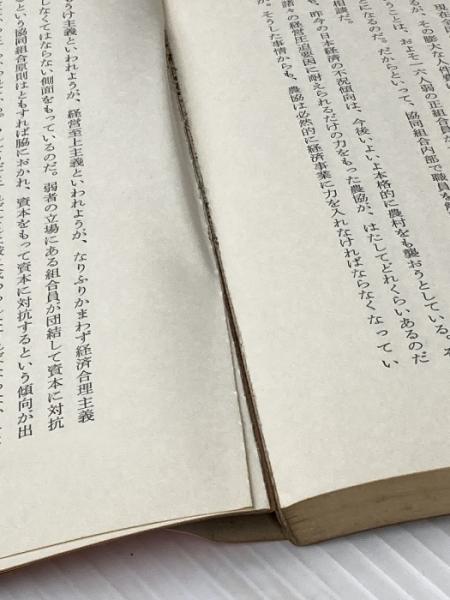 るが、その膨大な人件費
うことは、およそ一六人弱の正組合員だ
とになるのだ。だからといって、協同組合内部で職員を
相談だ。
も、昨今の日本経済の不況傾向は、今後いよいよ本格的に農村をも襲おうとしている。
諸々の経営圧迫要因に耐えられるだけの力をもった農協が、はたしてどれくらいあるのだ
か。そうした事情からも、農協は必然的に経済事業に力を入れなければならなくなってい
うけ主義といわれようが、経営至上主義といわれようが、なりふりかまわず経済合理主義
しなくてはならない側面をもっているのだ。弱者の立場にある組合員が団結して資本に対抗
という協同組合原則はともすれば脇におかれ、資本をもって資本に対抗するという傾向が出